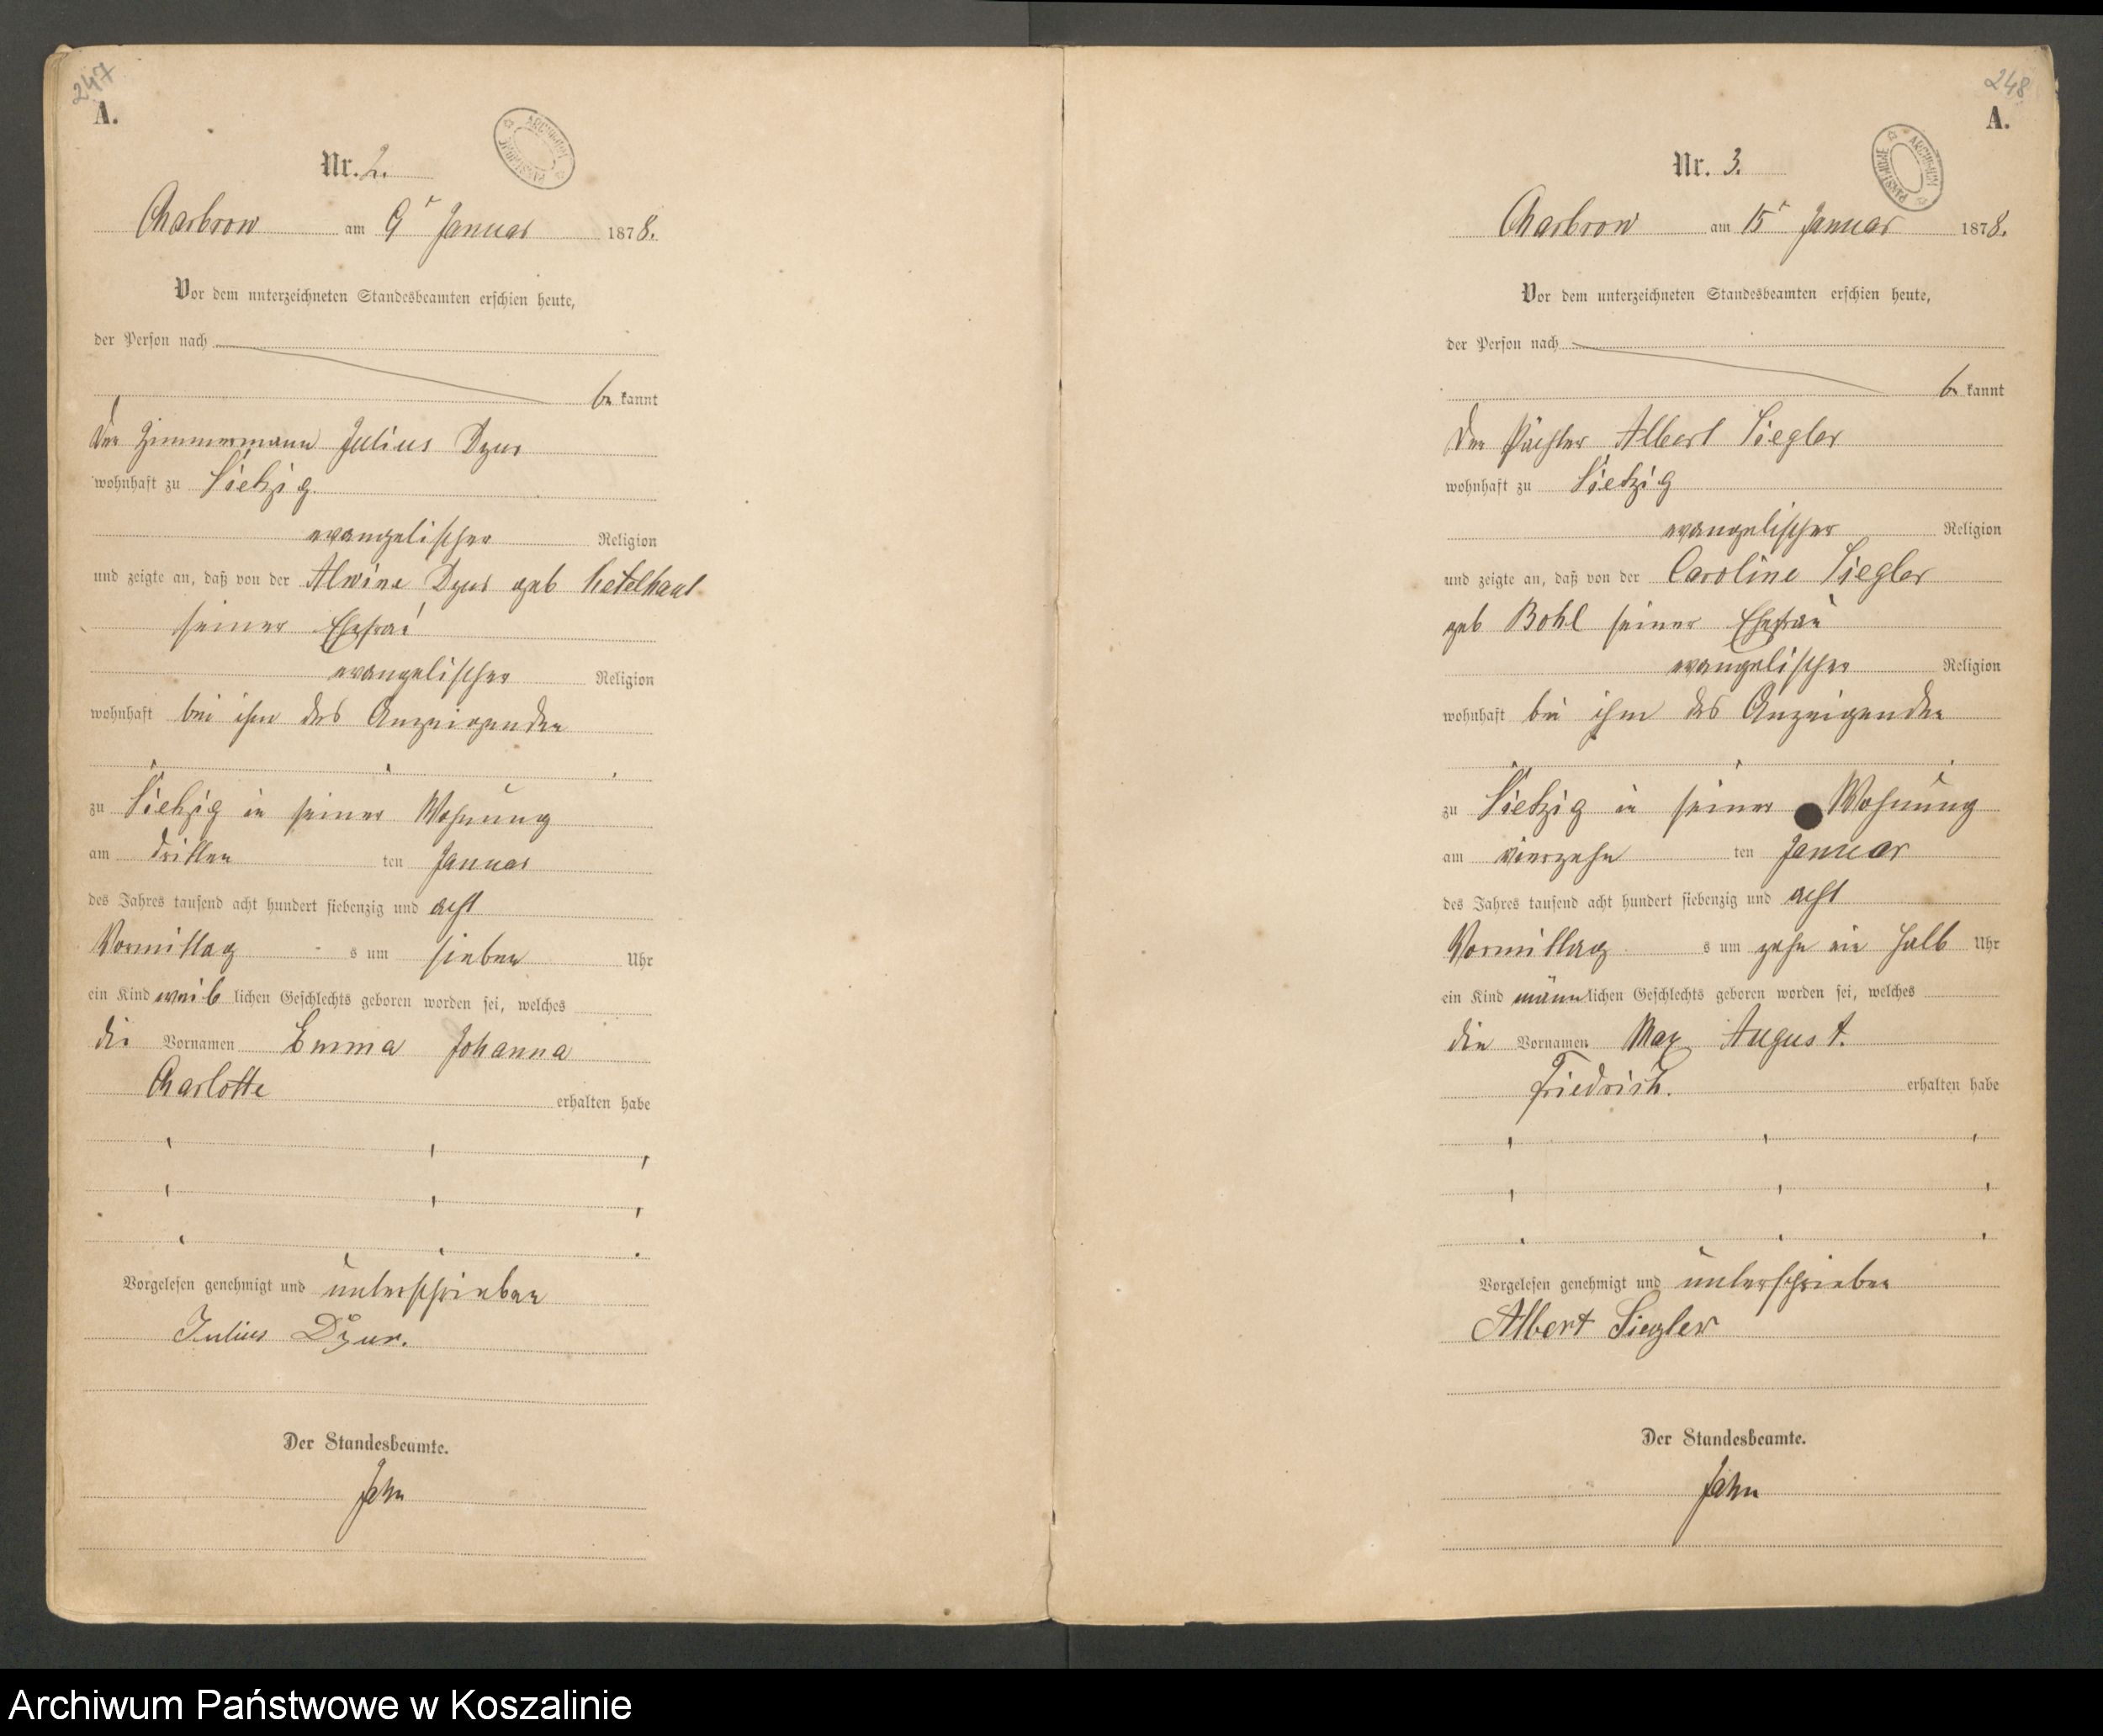 247
A.
ARCHIWUM PAŃSTWOWE
Nr. 2.
Charbrow am 9t Januar 1878.
Vor dem unterzeichneten Standesbeamten erschien heute,
der Person nach
be kannt
der Zimmermann Julius Dzur
wohnhaft zu Sietzig
evangelischer Religion
und zeigte an, daß von der Alwine Dzur geb
seiner Ehefrau
evangelischer Religion
wohnhaft bei ihm des Anzeigenden
zu Sietzig in seiner Wohnung
am dritten ten Januar
des Jahres tausend acht hundert siebenzig und acht
Vormittag s um sieben Uhr
ein Kind weib lichen Geschlechts geboren worden sei, welches
die Vornamen Emma Johanna
Charlotte erhalten habe
Vorgelesen genehmigt und unterschrieben
Julius Dzur.
Der Standesbeamte.
Jahn
248
A.
ARCHIWUM PAŃSTWOWE
Nr. 3.
Charbrow am 15t Januar 1878.
Vor dem unterzeichneten Standesbeamten erschien heute,
der Person nach
be kannt
der Pächter Albert Siegler
wohnhaft zu Sietzig
evangelischer Religion
und zeigte an, daß von der Caroline Siegler
geb Bohl seiner Ehefrau
evangelischer Religion
wohnhaft bei ihm des Anzeigenden
zu Sietzig in seiner Wohnung
am vierzehn ten Januar
des Jahres tausend acht hundert siebenzig und acht
Vormittag s um zehn ein halb Uhr
ein Kind männlichen Geschlechts geboren worden sei, welches
die Vornamen Max August.
Friedrich. erhalten habe
Vorgelesen genehmigt und unterschrieben
Albert Siegler
Der Standesbeamte.
Jahn
Archiwum Państwowe w Koszalinie